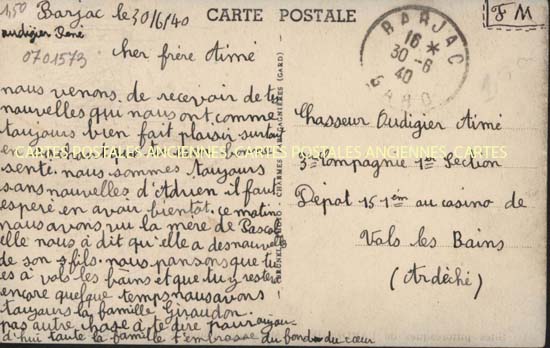 1,50
Barjac le 30/6/40
audigier René
0701573
CARTE POSTALE
F M
BARJAC
16 *
30-6
40
GARD
cher frère Aimé
nous venons de recevoir de tes
nouvelles qui nous ont comme
toujours bien fait plaisir surtout
en sachant en bonne
senté nous sommes toujours
sans nouvelles d'Adrien il faut
espéré en avoir bientot, ce matin
nous avons vu la mère de Pascal
elle nous à dit qu'elle a des nouvelles
de son s fils. nous pensons que tu
es à vals les bains et que tu y restera
encore quelque temps nous avons
toujours la famille Giraudon.
pas autre chose à te dire pour aujour
d'hui toute la famille t'embrasse du fond du cœur
Chasseur Audigier Aimé
3em Compagnie 1er Section
Dépot 15 1em au casino de
Vals les Bains
(Ardèche)
CARTES POSTALES ANCIENNES. CARTES POSTALES ANCIENNES. CARTES